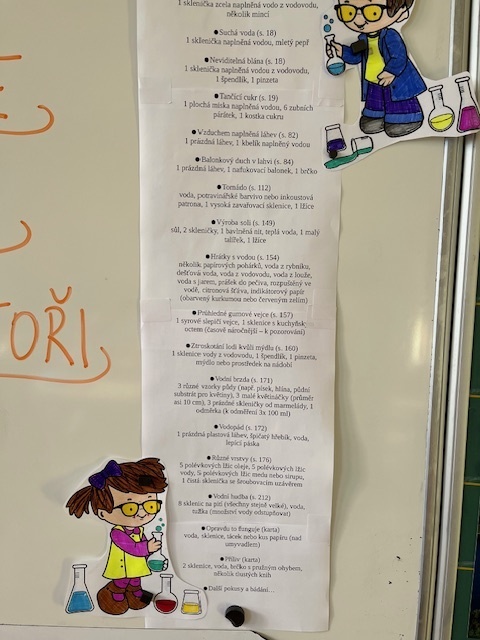 1 sklenička zcela naplněná vodou z vodovodu,
několik mincí
●Suchá voda (s. 18)
1 sklenička naplněná vodou, mletý pepř
●Neviditelná blána (s. 18)
1 sklenička naplněná vodou z vodovodu,
1 špendlík, 1 pinzeta
●Tančící cukr (s. 19)
1 plochá miska naplněná vodou, 6 zubních
párátek, 1 kostka cukru
●Vzduchem naplněná láhev (s. 82)
1 prázdná láhev, 1 kbelík naplněný vodou
●Balonkový duch v lahvi (s. 84)
1 prázdná láhev, 1 nafukovací balonek, 1 brčko
●Tornádo (s. 112)
voda, potravinářské barvivo nebo inkoustová
patrona, 1 vysoká zavařovací sklenice, 1 lžíce
●Výroba soli (s. 149)
sůl, 2 skleničky, 1 bavlněná nit, teplá voda, 1 malý
talířek, 1 lžíce
●Hrátky s vodou (s. 154)
několik papírových pohárků, voda z rybníku,
dešťová voda, voda z vodovodu, voda z louže,
voda s jarem, prášek do pečiva, rozpuštěný ve
vodě, citronová šťáva, indikátorový papír
(obarvený kurkumou nebo červeným zelím)
●Průhledné gumové vejce (s. 157)
1 syrové slepičí vejce, 1 sklenice s kuchyňským
octem (časově náročnější – k pozorování)
●Ztroskotání lodi kvůli mýdlu (s. 160)
1 sklenice vody z vodovodu, 1 špendlík, 1 pinzeta,
mýdlo nebo prostředek na nádobí
●Vodní brzda (s. 171)
3 různé vzorky půdy (např. písek, hlína, půdní
substrát pro květiny), 3 malé květináčky (průměr
asi 10 cm), 3 prázdné skleničky od marmelády, 1
odměrka (k odměření 3x 100 ml)
●Vodopád (s. 172)
1 prázdná plastová láhev, špičatý hřebík, voda,
lepící páska
●Různé vrstvy (s. 176)
5 polévkových lžic oleje, 5 polévkových lžic
vody, 5 polévkových lžic medu nebo sirupu,
1 čistá sklenička se šroubovacím uzávěrem
●Vodní hudba (s. 212)
8 sklenic na pití (všechny stejně velké), voda,
tužka (množství vody odstupňovat)
●Opravdu to funguje (karta)
voda, sklenice, tácek nebo kus papíru (nad
umyvadlem)
●Příliv (karta)
2 sklenice, voda, brčko s pružným ohybem,
několik tlustých knih
●Další pokusy a bádání…
OŘI